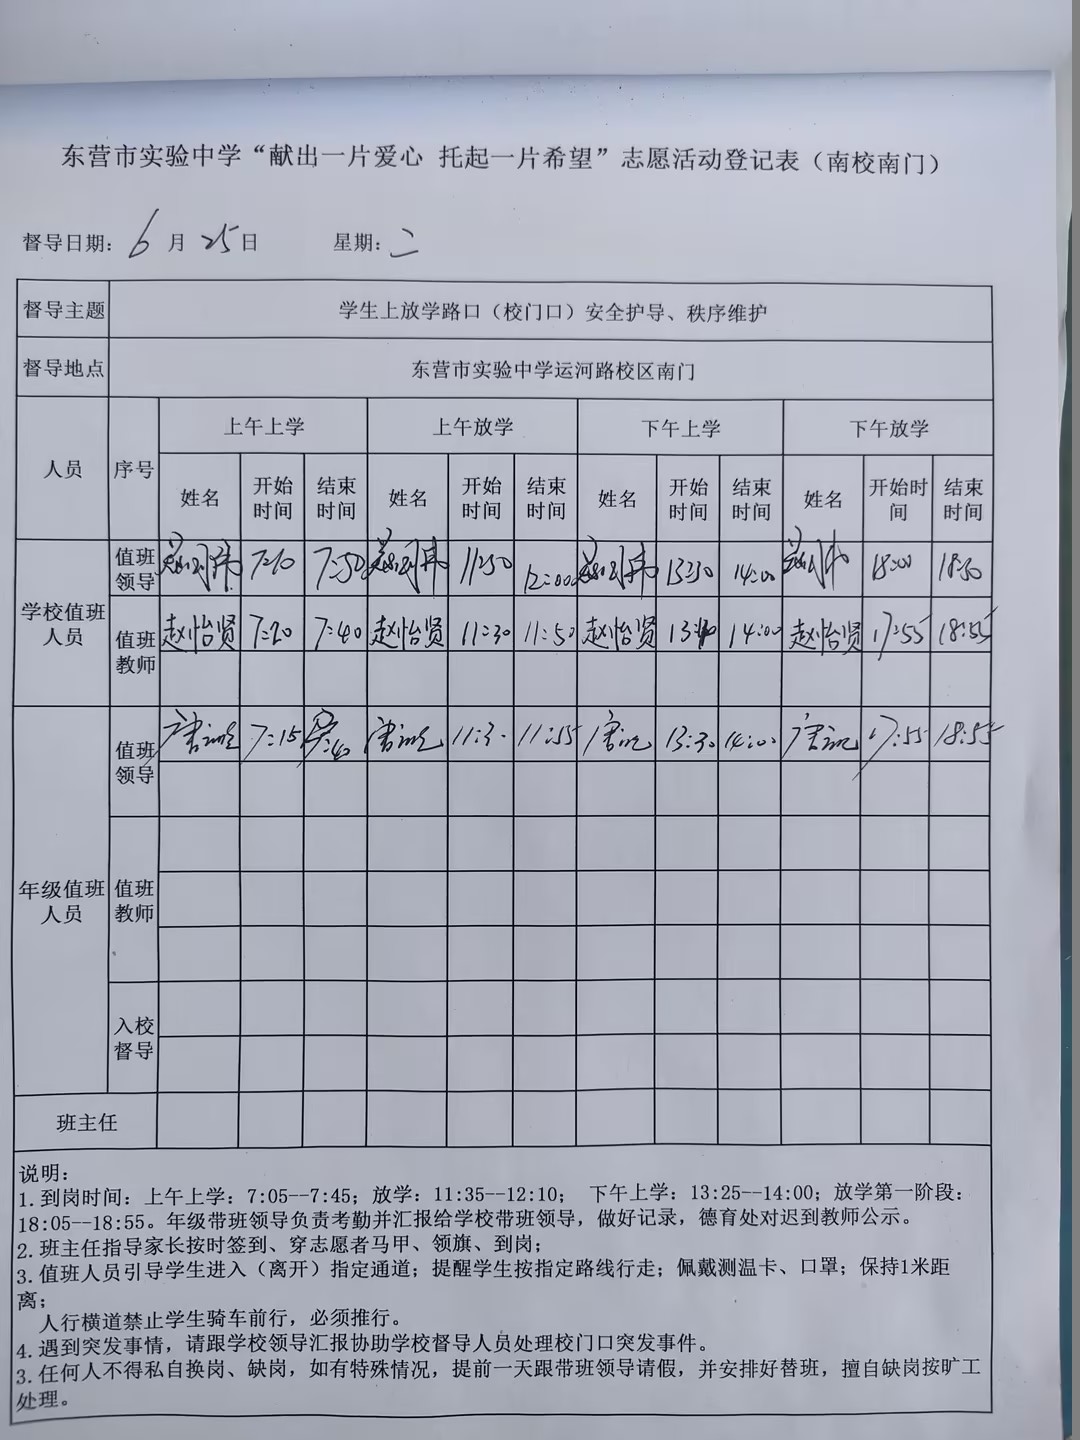 东营市实验中学“献出一片爱心 托起一片希望”志愿活动登记表（南校南门）
督导日期: 6 月 25 日 星期: 二
督导主题 学生上放学路口（校门口）安全护导、秩序维护
督导地点 东营市实验中学运河路校区南门
人员 序号 上午上学 上午放学 下午上学 下午放学
姓名 开始时间 结束时间 姓名 开始时间 结束时间 姓名 开始时间 结束时间 姓名 开始时间 结束时间
学校值班人员 值班领导 7:50 11:50 12:00 13:30 14:00 18:00 18:50
值班教师 赵怡贤 7:20 7:40 赵怡贤 11:30 11:50 赵怡贤 14:00 赵怡贤 17:55 18:55
年级值班人员 值班领导 7:15 11:55 13:30 14:00 17:55 18:55
值班教师
入校督导
班主任
说明:
1.到岗时间: 上午上学: 7:05--7:45; 放学: 11:35--12:10; 下午上学: 13:25--14:00; 放学第一阶段:
18:05--18:55。年级带班领导负责考勤并汇报给学校带班领导, 做好记录, 德育处对迟到教师公示。
2.班主任指导家长按时签到、穿志愿者马甲、领旗、到岗;
3.值班人员引导学生进入（离开）指定通道; 提醒学生按指定路线行走; 佩戴测温卡、口罩; 保持1米距
离;
人行横道禁止学生骑车前行, 必须推行。
4.遇到突发事情, 请跟学校领导汇报协助学校督导人员处理校门口突发事件。
3.任何人不得私自换岗、缺岗, 如有特殊情况, 提前一天跟带班领导请假, 并安排好替班, 擅自缺岗按旷工
处理。